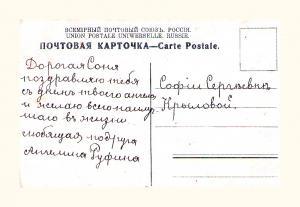 ВСЕМІРНЫЙ ПОЧТОВЫЙ СОЮЗЪ. РОССІЯ.
UNION POSTALE UNIVERSELLE. RUSSIE.
ПОЧТОВАЯ КАРТОЧКА—Carte Postale.
Дорогая Соня
поздравляю тебя
съ днемъ твоего ангела
и желаю всего наилуч
шаго въ жизни
любящая подруга
Ангелина Руфина
Софіи Сергѣевнѣ
Крыловой.